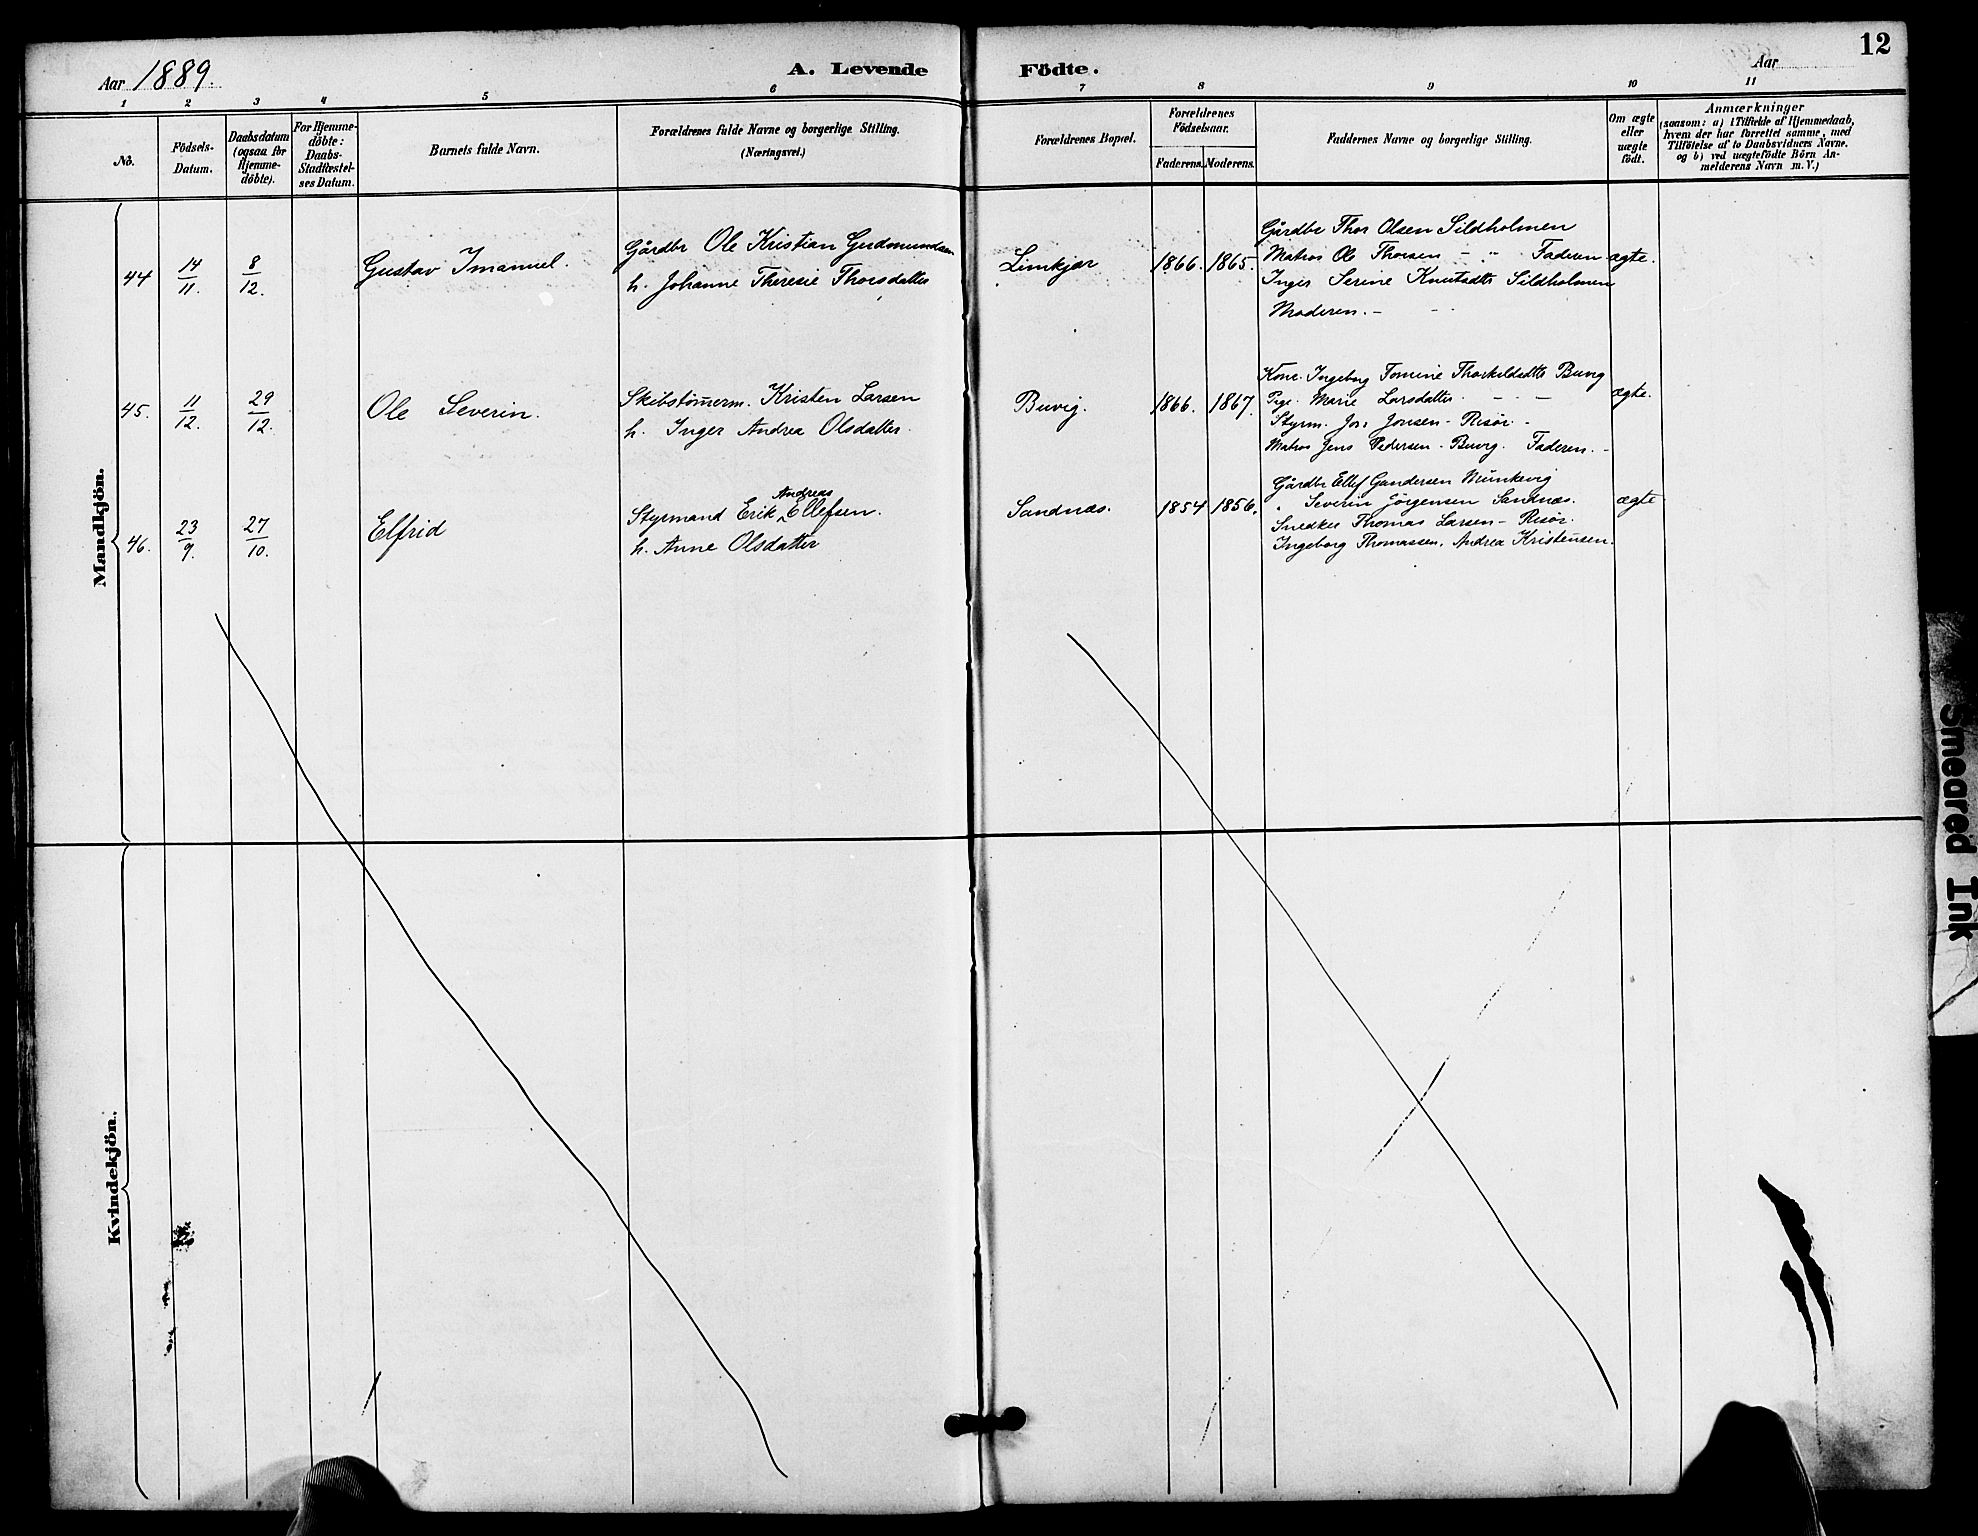 12
Aar 1889.
A. Levende Födte.
Aar
1 2 3 4 5 6 7 8 9 10 11
No.
Födsels-Datum.
Daabsdatum (ogsaa for Hjemme-döbte).
For Hjemme-döbte: Daabs-Stadfæstel-ses Datum.
Barnets fulde Navn.
Forældrenes fulde Navne og borgerlige Stilling.
(Næringsvei.)
Forældrenes Bopæl.
Forældrenes Födselsaar.
Faderens. Moderens.
Faddernes Navne og borgerlige Stilling.
Om ægte eller uægte födt.
Anmærkninger
(saasom: a) i Tilfælde af Hjemmedaab,
hvem der har forrettet samme, med
Tilföielse af to Daabsvidners Navne.
og b) ved uægtefödte Börn An-
melderens Navn m. V.)
Mandkjön.
44 14/11. 8/12. Gustav Imanuel.
Gårdbr Ole Kristian Gudmundsen
h. Johanne Theresie Thorsdatter
Limkjær 1866. 1865.
Gårdbr Thor Olsen Sildholmen
Matros Ole Thorsen - " - Faderen
Inger Serine Knutsdtr Sildholmen
Moderen. -
ægte.
45. 11/12. 29/12. Ole Severin.
Skibstömerm. Kristen Larsen
h. Inger Andrea Olsdatter.
Buvig. 1866. 1867.
Kone. Ingeborg Tomine Thorkildsdtr Buvig
Pige. Marie Larsdatter. - - -
Styrm. Jos. Jonsen - Risør. -
Matros Jens Pedersen - Buvig. Faderen. -
ægte.
46. 23/9. 27/10. Elfrid
Styrmand Erik Andreas Ellefsen.
h. Anne Olsdatter
Sandnæs. 1854 1856.
Gårdbr Ellef Gundersen
" Severin Jørgensen Sandnæs.
Snedker Thomas Larsen - Risør.
Ingeborg Thomassen. Andrea Kristensen.
ægte
Kvindekjön.
Smeared Ink